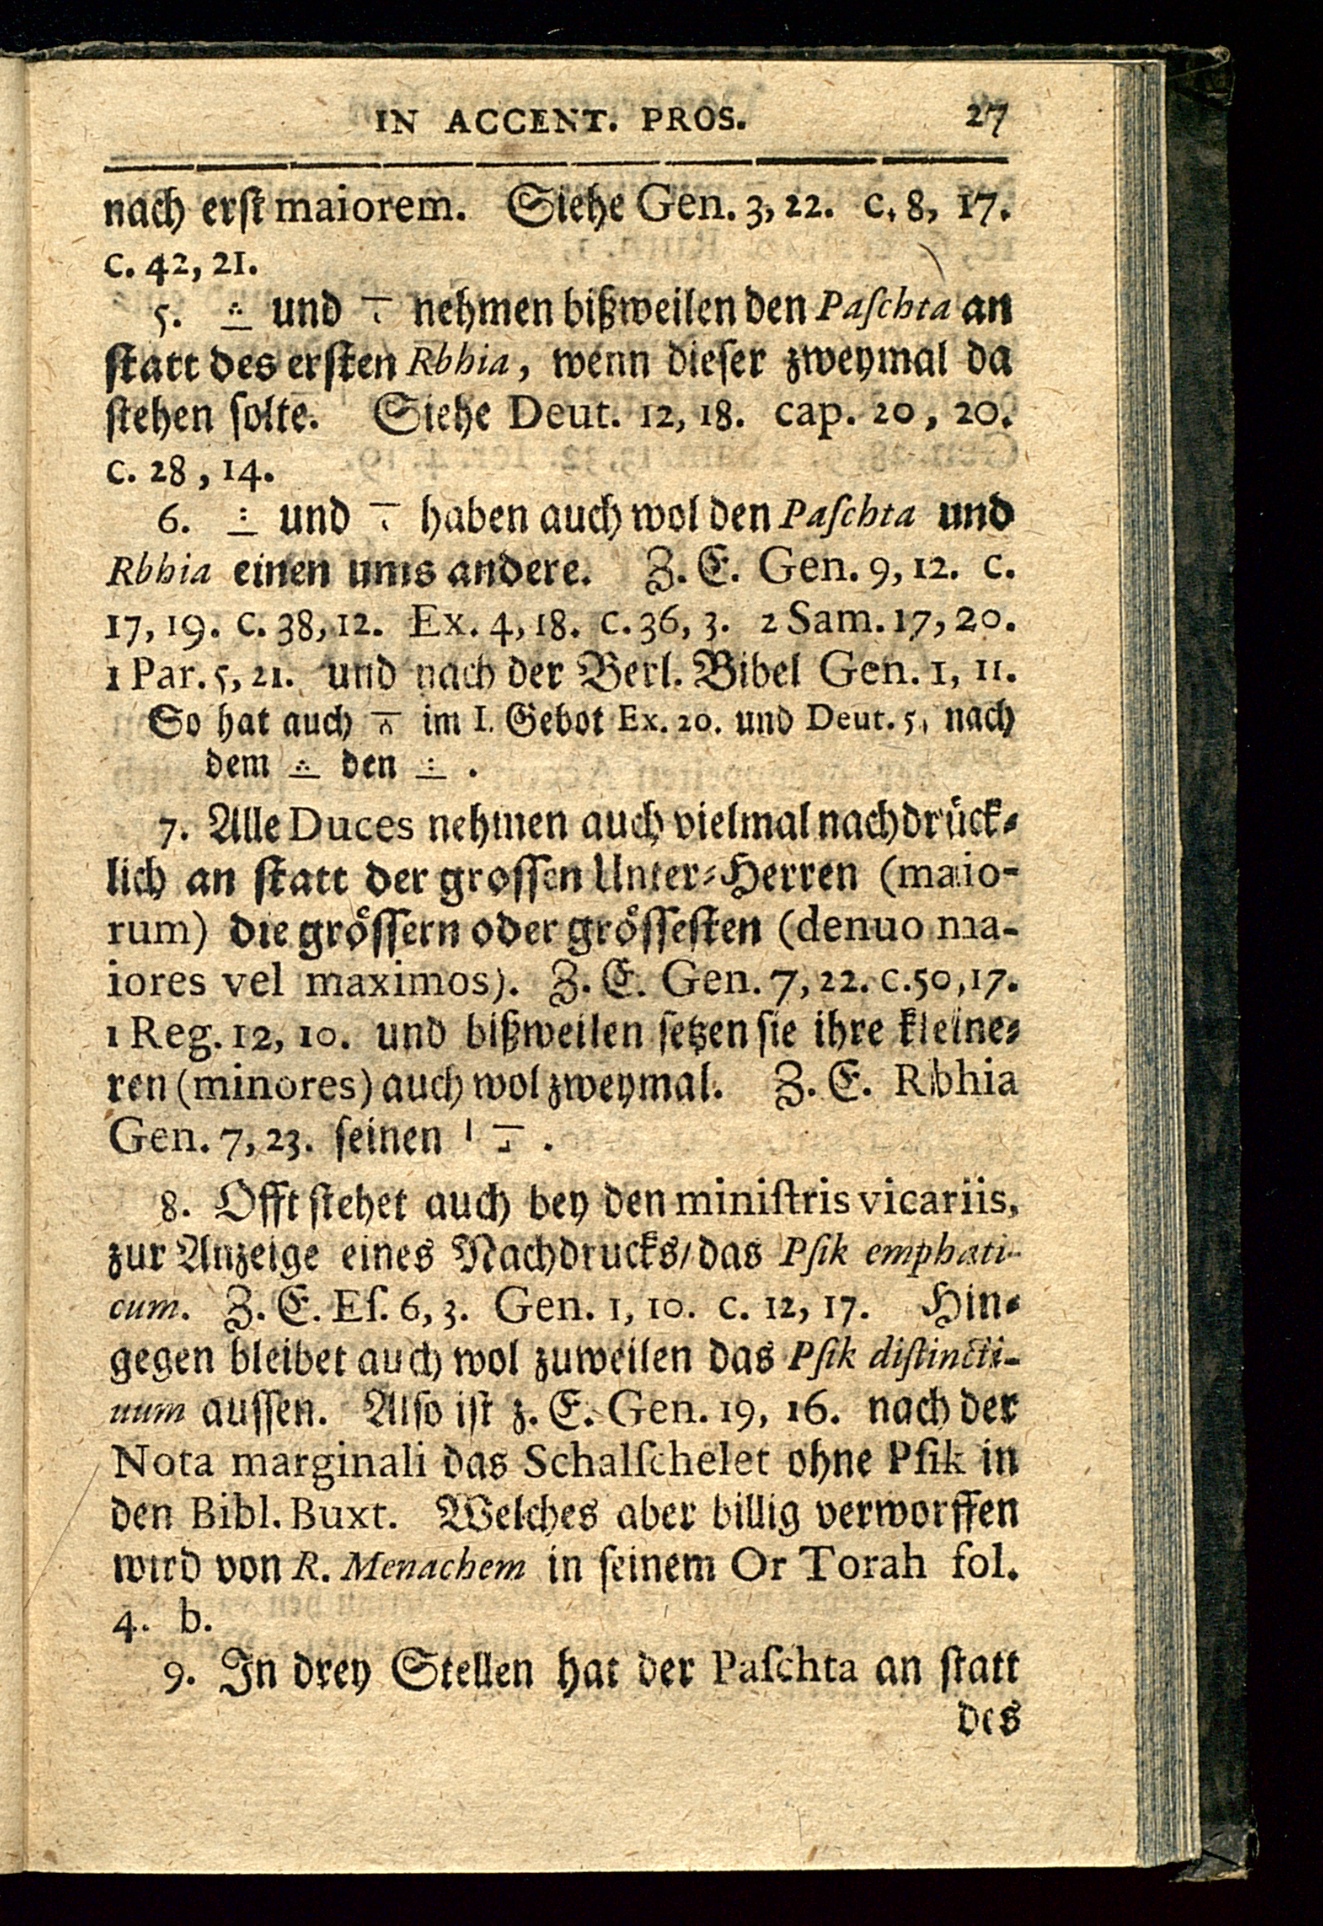 IN ACCENT. PROS. 27
nach erst maiorem. Siehe Gen. 3, 22. c. 8, 17.
c. 42, 21.
5. und nehmen bißweilen den Paſchta an
ſtatt des erſten Rbhia, wenn dieſer zweymal da
ſtehen ſolte. Siehe Deut. 12, 18. cap. 20, 20.
c. 28, 14.
6. und haben auch wol den Paſchta und
Rbhia einen ums andere. Z. E. Gen. 9, 12. c.
17, 19. c. 38, 12. Ex. 4, 18. c. 36, 3. 2 Sam. 17, 20.
1 Par. 5, 21. und nach der Berl. Bibel Gen. 1, 11.
So hat auch im I. Gebot Ex. 20. und Deut. 5, nach
dem den .
7. Alle Duces nehmen auch vielmal nachdrück⸗
lich an ſtatt der groſſen Unter⸗Herren (maio-
rum) die gröſſern oder gröſſeſten (denuo ma-
iores vel maximos). Z. E. Gen. 7, 22. c. 50, 17.
1 Reg. 12, 10. und bißweilen ſetzen ſie ihre kleine⸗
ren (minores) auch wol zweymal. Z. E. Rbhia
Gen. 7, 23. ſeinen .
8. Offt ſtehet auch bey den miniſtris vicariis,
zur Anzeige eines Nachdrucks/ das Pſik emphati-
cum. Z. E. Eſ. 6, 3. Gen. 1, 10. c. 12, 17. Hin⸗
gegen bleibet auch wol zuweilen das Pſik diſtincti-
uum auſſen. Alſo iſt z. E. Gen. 19, 16. nach der
Nota marginali das Schalſchelet ohne Pſik in
den Bibl. Buxt. Welches aber billig verworffen
wird von R. Menachem in ſeinem Or Torah fol.
4. b.
9. In drey Stellen hat der Paſchta an ſtatt
des